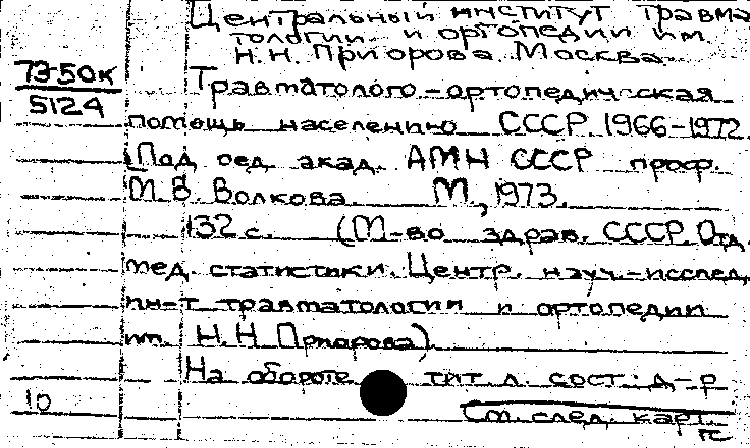 Центральный институт травма
тологии и ортопедии им.
Н.Н. Приорова. Москва
73-50к
5124
Травматолого-ортопедическая
помощь населению СССР. 1966-1972
Под ред. акад. АМН СССР проф.
М.В. Волкова М., 1973.
132 с. (М-во здрав. СССР. Отд.
мед. статистики. Центр. науч.-исслед.
ин-т травматологии и ортопедии
им. Н.Н. Приорова).
На обороте тит. л. сост.: д-р
10
См. след. карт.